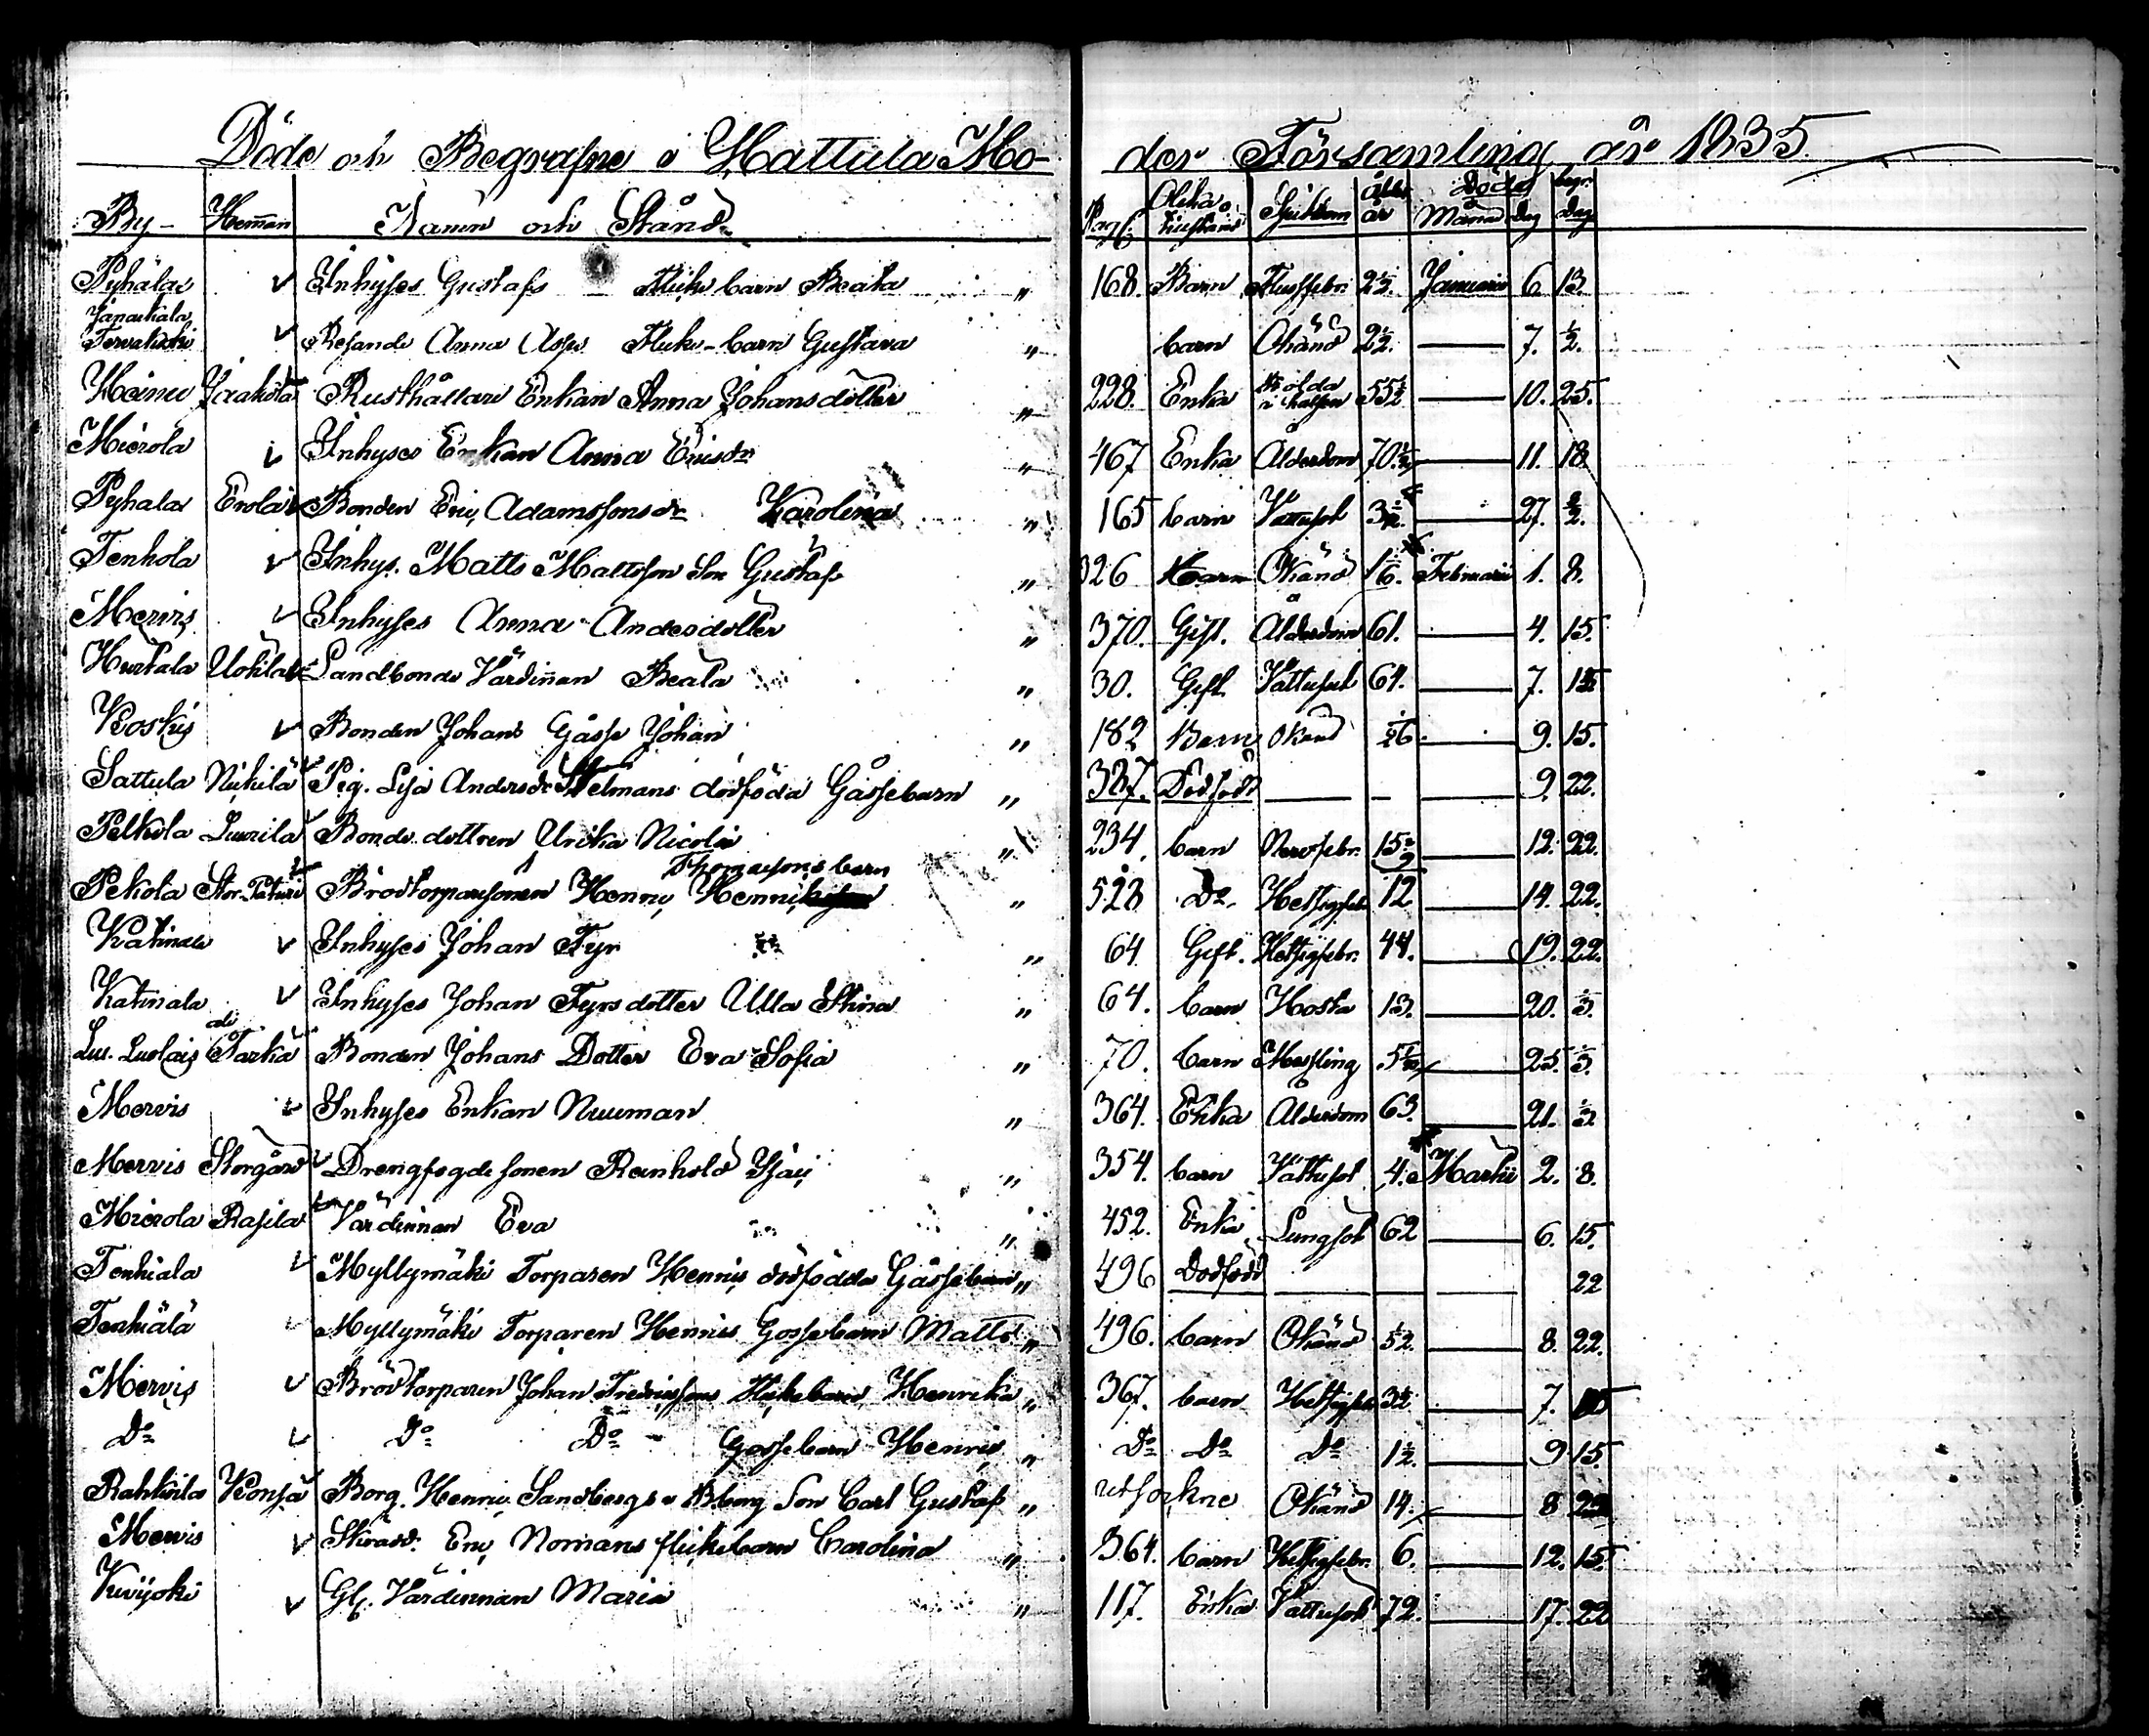 Döde och Begrafne i Hattula Mo- der Församling år 1835.
By Hemman Namn och Stånd Pag. Åkta o. Sjukdom Ålder år Döde Månad dag begr. dag
Pyhälä Inhyses Gustafs Flicke barn Beata " 168. Barn 2½. Januarii 6 13.
Janackala
Tervakoski Resande Anna Flicke-barn Gustava " barn Okänd 2½. 7. ½.
Heinu Jaakola Rusthållare Enkan Anna Johansdotter " 228. Enka 55½ 10. 25.
Mierola Inhyses Enkan Anna Ericsdr " 467 Enka Ålderdom 11. 18
Pyhälä Erola Bonden Eric Adamssons dr Karolina " 165 barn Vattusot 27.
Tenhola Inhys. Matts Mattsson Son Gustaf " 326 barn Okänd Februarii 1. 8.
Mervis Inhyses Anna Andersdotter " 370. Gift. Ålderdom 61. 4. 15.
Hurtala Uotila Landbonde Värdinnan Beata " 30. Gift. Vattusot 64. 7.
Koskis Bonden Johans Gåsse Johan " 182 Barn Okänd 9. 15.
Sattula Nickilä Pig. Lisa Andersdr dödföda Gåssebarn " 327. Dödfödd — — 9. 22.
Pelkola Bonde dottren Ulrika Nicolin " 234. barn Nervfebr. 12. 22.
Thomassons barn
Pekola Brödtorparesonen Henric " 528 Do. Hetsigfeb. 12 14. 22.
Katinala Inhyses Johan Fyr " 64 Gift. Hetsigfebr. 44. 19. 22.
Katinala Inhyses Johan Fyrs dotter Ulla Stina " 64. barn Hosta 13. 20.
Lu. Luolais Tarkä Bonden Johans Dotter Eva Sofia " 70. barn Messling 25.
Mervis Inhyses Enkan Nuuman " 364. Enka Ålderdom 63. 21.
Mervis Storgård Drengfogde sonen Reinhold " 354. barn Vattusot 4. Martii 2. 8.
Mierola Rasila Värdinnan Eva " 452. Enka Lungsot 62 6. 15.
Tenhiala Myllymäki Torparen Henrics dödfödda Gåssebarn " 496 Dödfödd 22
Tenhiälä Myllymäki Torparen Henrics Gossebarn Matts " 496. barn Okänd 8. 22.
Mervis Brödtorparen Johan Fredricssons Flickebarn Henrika " 367. barn Hetsigfeb 7. 15
Do Do Do Gossebarn Henric " Do Do Do 1½. 9 15.
Rahkoila Konsa Borg. Henric Sandbergs i Bborg Son Carl Gustaf " utsokne Okänd 14. 8 22
Mervis Skrädd. Eric Nomans flickebarn Carolina " 364. barn Hetsigfebr. 6. 12. 15.
Kuvijoki Gl. Värdinnan Maria " 117. Enka Vattusot 72. 17. 22